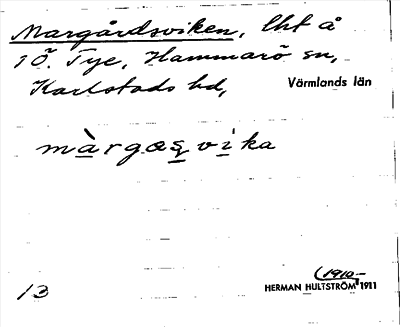 Margårdsviken, lht å
1 Ö. Tye, Hammarö sn,
Karlstads hd, Värmlands län
màrgaşvika
13
(1910-
HERMAN HULTSTRÖM 1911